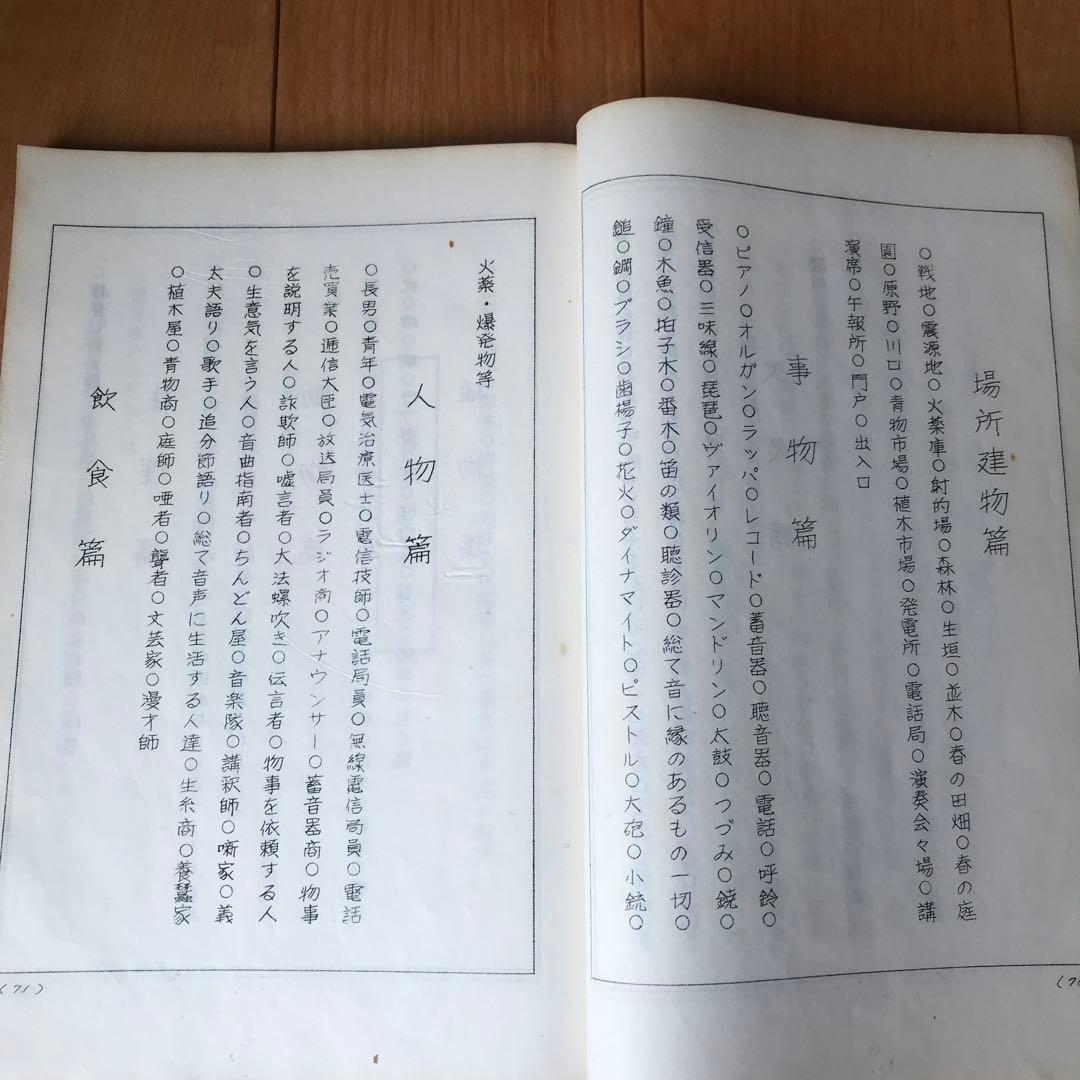 場所建物篇
○戦地○震源地○火薬庫○射的場○森林○生垣○並木○春の田畑○春の庭
園○原野○川口○青物市場○植木市場○発電所○電話局○演奏会々場○講
演席○午報所○門戸○出入口
事物篇
○ピアノ○オルガン○ラッパ○レコード○蓄音器○聴音器○電話○呼鈴○
受信器○三味線○琵琶○ヴァイオリン○マンドリン○太鼓○つづみ○鐃○
鐘○木魚○拍子木○番木○笛の類○聴診器○総て音に縁のあるもの一切○
鎚○鋼○ブラシ○歯楊子○花火○ダイナマイト○ピストル○大砲○小銃○
(70
火薬・爆発物等
人物篇
○長男○青年○電気治療医士○電信技師○電話局員○無線電信局員○電話
売買業○逓信大臣○放送局員○ラジオ商○アナウンサー○蓄音器商○物事
を説明する人○詐欺師○嘘言者○大法螺吹き○伝言者○物事を依頼する人
○生意気を言う人○音曲指南者○ちんどん屋○音楽隊○講釈師○噺家○義
太夫語り○歌手○追分節語り○総て音声に生活する人達○生糸商○養蚕家
○植木屋○青物商○庭師○唖者○聾者○文芸家○漫才師
飲食篇
(71)